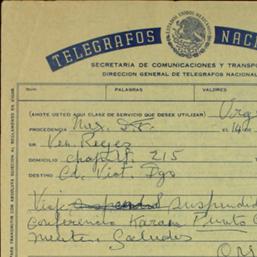 TELEGRAFOS NAC
ESTADOS UNIDOS MEXICANOS
SECRETARIA DE COMUNICACIONES Y TRANSPO
DIRECCION GENERAL DE TELEGRAFOS NACIONAL
Núm. PALABRAS VALORES
(ANOTE USTED AQUI CLASE DE SERVICIO QUE DESEE UTILIZAR) Urg
PROCEDENCIA Mex. D.F. el 14
SR. Ven. Reyes
DOMICILIO Chapult. 215
DESTINO Cd. Vict. Dgo
suspendid
Conferencia Karam Punto
Saludos
PARA TRANSMITIR CON ABSOLUTA SUJECION AL REGLAMENTO EN VIGOR.